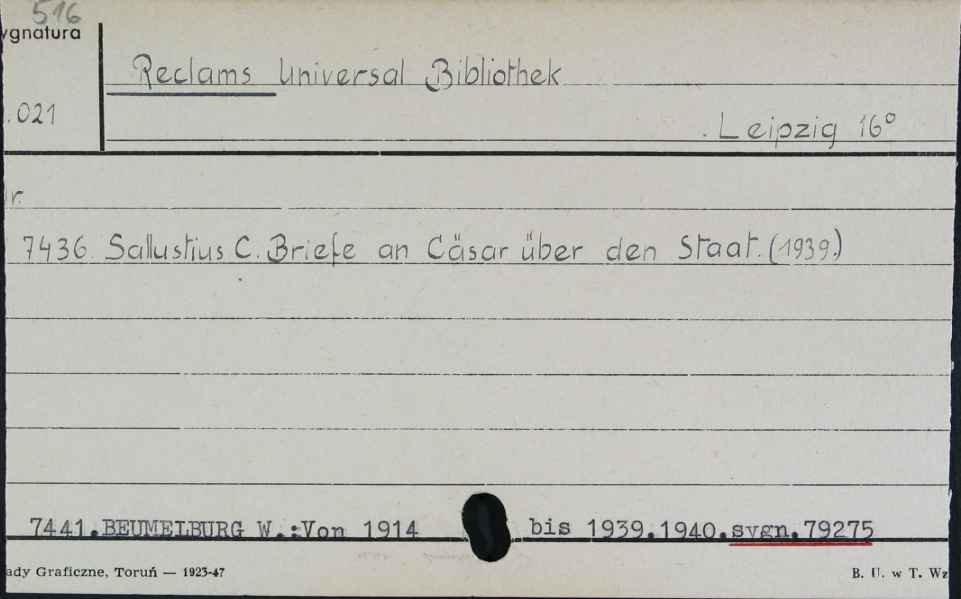 516
ygnatura
Reclams Universal Bibliothek
.021
. Leipzig 16°
r.
7436. Sallustius C. Briefe an Cäsar über den Staat. (1939.)
7441.BEUMELBURG W.:Von 1914 bis 1939.1940.sygn.79275
ady Graficzne, Toruń — 1923-47
B. U. w T. Wz